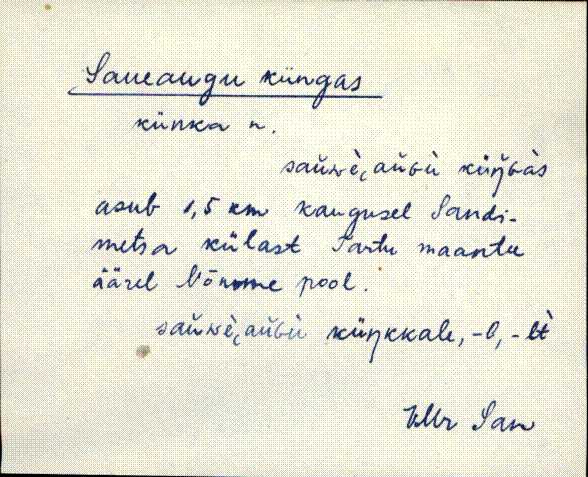 Saueaugu küngas
künka n.
sau̯wè, au̯ɢù küŋ̆ɢàs
asub 1,5 km kaugusel Sandi-
metsa külast Tartu maantee
äärel Nõmme pool.
sau̯wè, au̯ɢù küŋkkale, -l, -lt̀
San